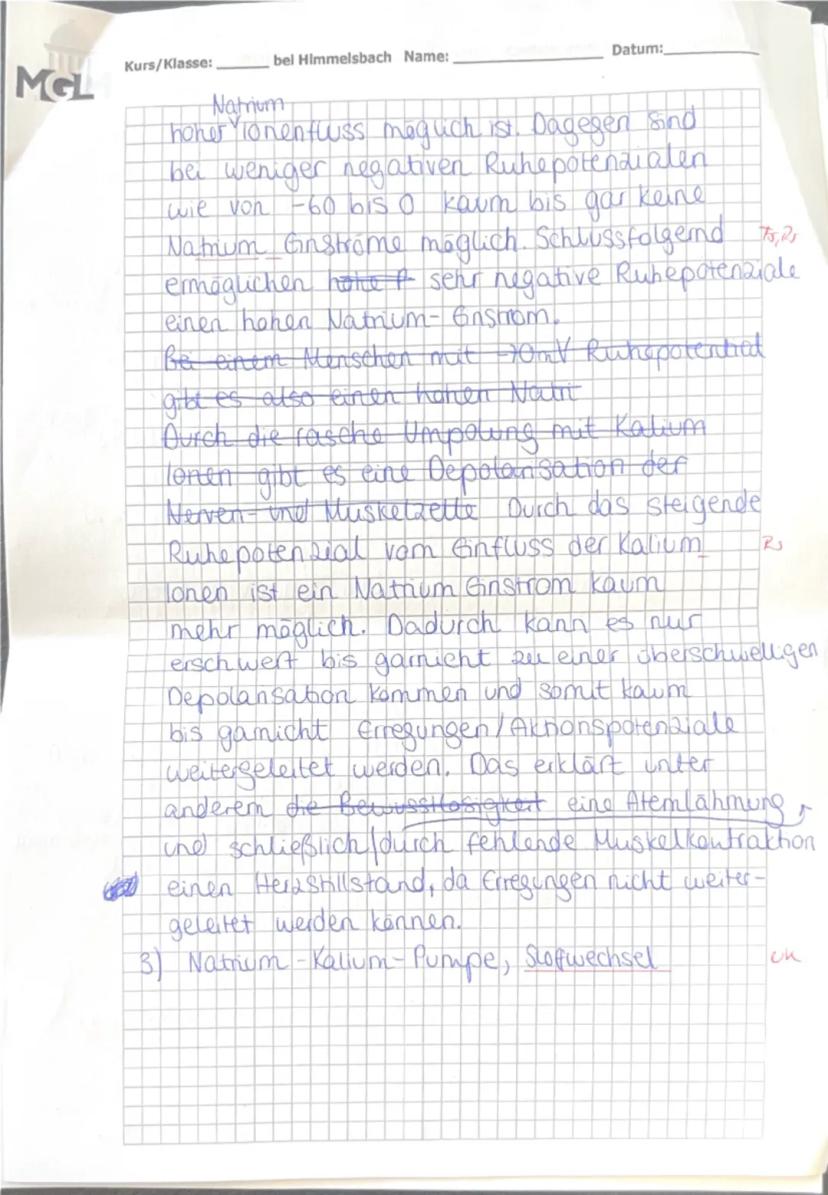 MGL
Kurs/Klasse: ______ bei Himmelsbach Name: ____________ Datum: ____________
Natrium
hoher ionenfluss möglich ist. Dagegen sind
bei weniger negativen Ruhepotenzialen
wie von -60 bis 0 kaum bis gar keine
Natrium Einströme möglich. Schlussfolgernd
ermöglichen hohe f sehr negative Ruhepotenziale
einen hohen Natrium-Einstrom.
Bei einem Menschen mit -70mV Ruhepotential
gibt es also einen hohen Natri
Durch die rasche Umpolung mit Kalium
Ionen gibt es eine Depolarisation der
Nerven- und Muskelzelle Durch das steigende
Ruhepotenzial vom Einfluss der Kalium Rs
Ionen ist ein Natrium Einstrom kaum
mehr möglich. Dadurch kann es nur
erschwert bis garnicht zu einer überschwelligen
Depolarisation kommen und somit kaum
bis garnicht Erregungen/Aktionspotenziale
weitergeleitet werden. Das erklärt unter
anderem die Bewusstlosigkeit eine Atemlähmung
und schließlich durch fehlende Muskelkontraktion
einen Herzstillstand, da Erregungen nicht weiter-
geleitet werden können.
3) Natrium-Kalium-Pumpe, Stoffwechsel